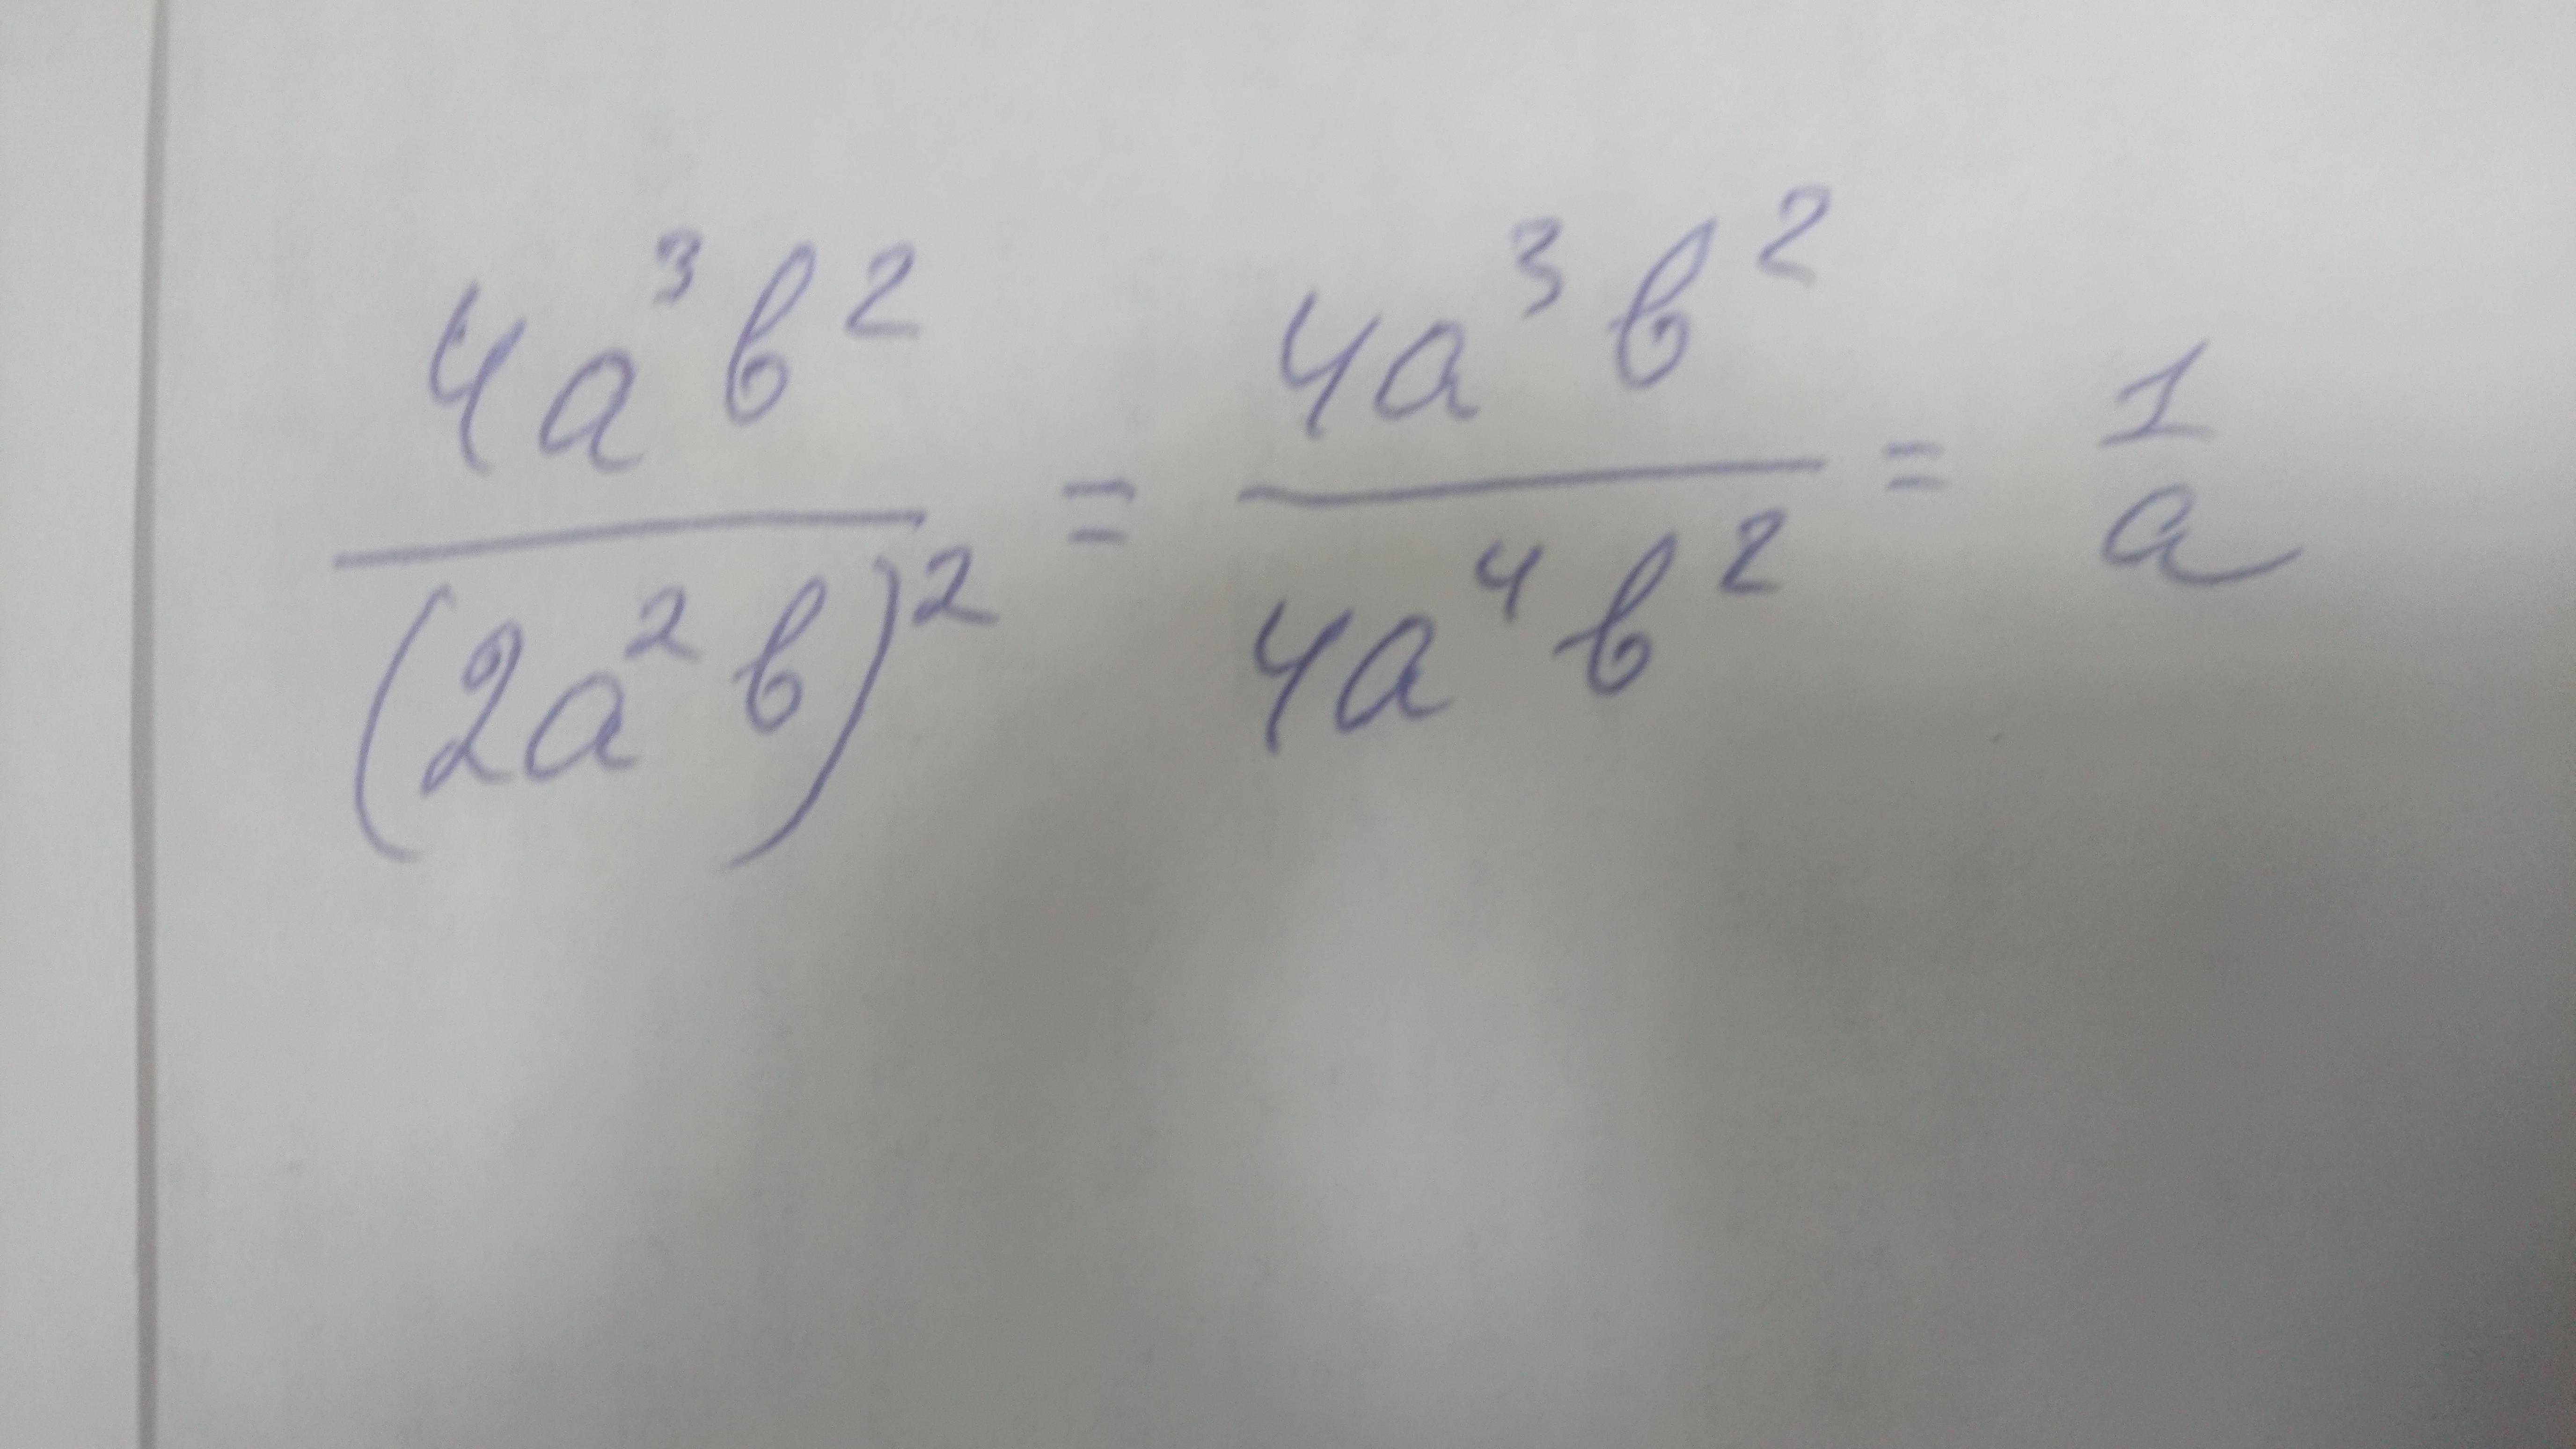 4a³b² / (2a²b)² = 4a³b² / 4a⁴b² = 1/a